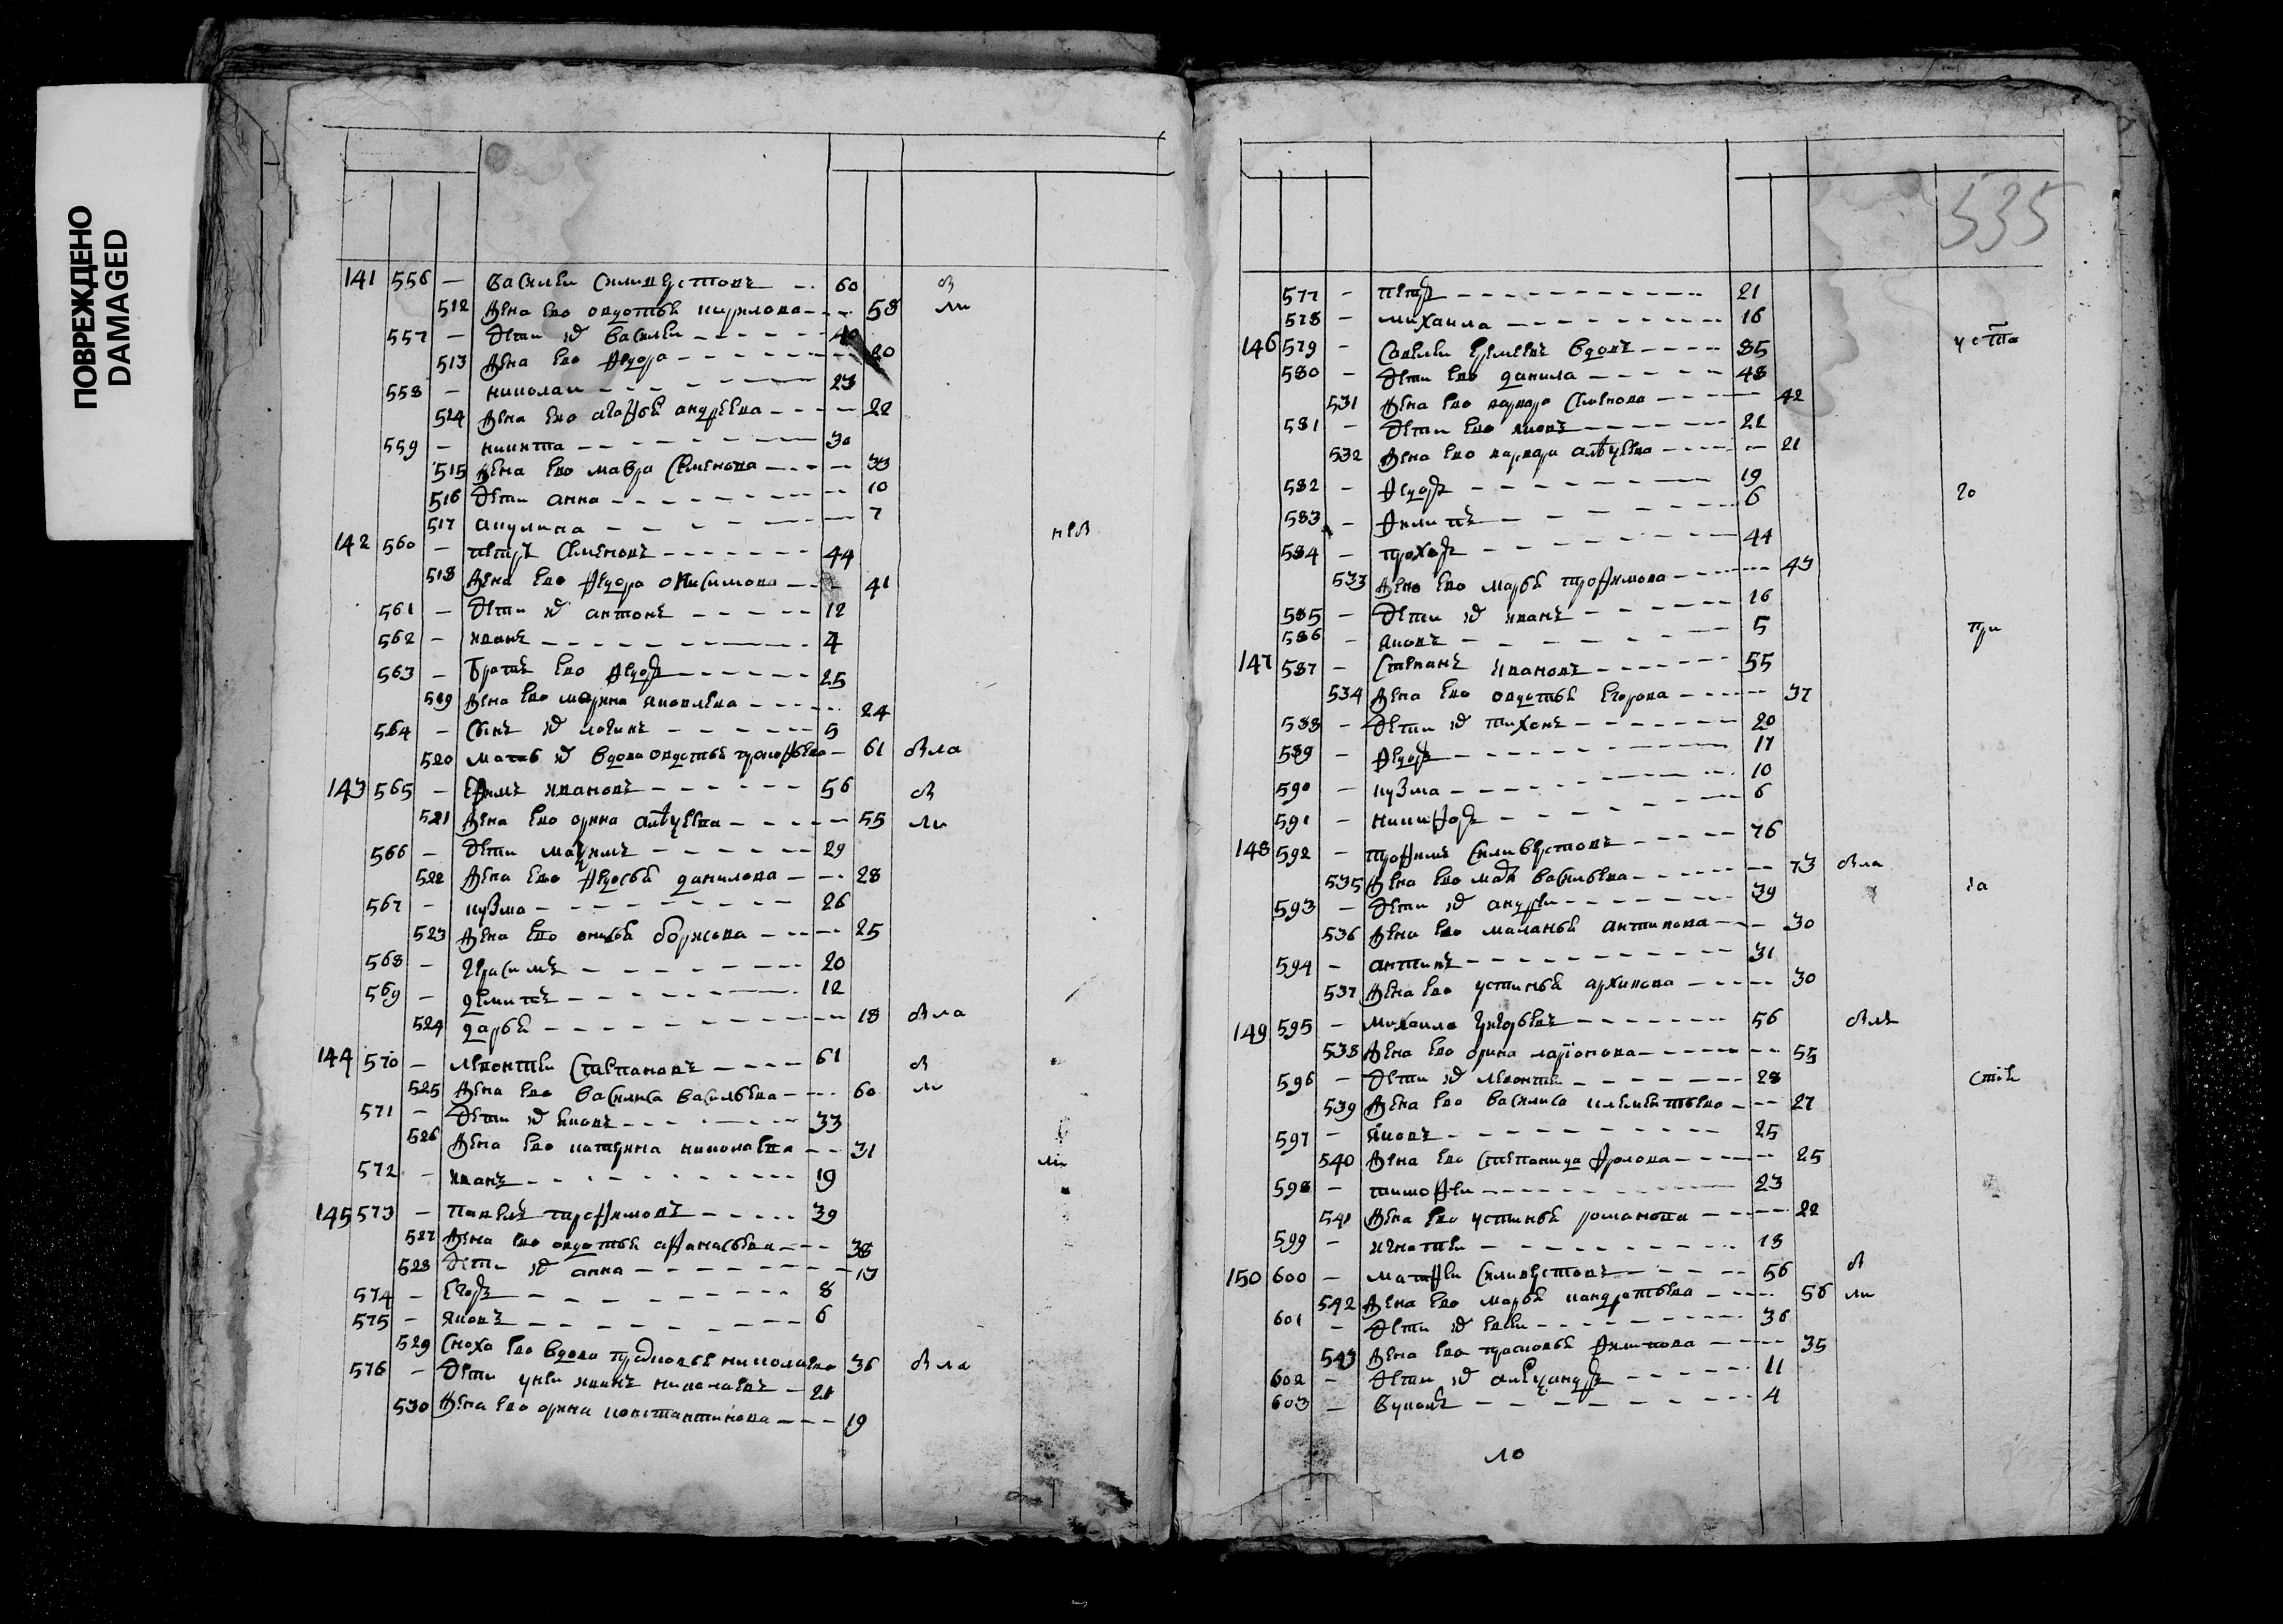 ПОВРЕЖДЕНО
DAMAGED
141 556 — Василеи Силивερстовъ — 60 в
512 Жена ево овдотья кирилова — 58 ли
557 — дети их василеи — 40
513 Жена ево федора — 20
558 — николаи — 23
514 Жена ево агафья андреева — 22
559 — никита — 30
515 жена ево мавра семенова — 33
516 дети анна — 10
517 акулина — 7
142 560 — петръ семеновъ — 44 нев
518 Жена ево федора онисимова — 41
561 — дети их антонъ — 12
562 — иванъ — 7
563 — братъ ево федоръ — 25
519 Жена ево марина яковлева — 24
564 — сынъ их логинъ — 5
520 мать их вдова овдотья тимофеева — 61 вла
143 565 — ефимъ ивановъ — 56 в
521 Жена ево орина алексеева — 55 ли
566 — дети максимъ — 29
522 Жена ево федосья данилова — 28
567 — кузма — 26
523 Жена ево онисья борисова — 25
568 — герасимъ — 20
569 — демитъ — 12
524 дарья — 18 вла
144 570 — леонтеи степановъ — 61 в
525 Жена ево василиса васильева — 60 ли
571 — дети их яковъ — 33
526 Жена ево катерина николаева — 31
572 — иванъ — 19 ли
145 573 — павелъ трофимовъ — 39
527 Жена ево овдотья афанасьева — 38
528 дети их анна — 13
574 — егоръ — 8
575 — яковъ — 6
529 сноха ево вдова прасковья николаева 36 вла
576 — дети у неи иванъ николаевъ — 21
530 Жена ево орина константинова — 19
535
577 — петръ — 21
578 — михаила — 16
146 579 — савелеи еремеевъ вдовъ — 85 уста
580 — дети ево данила — 48
531 Жена ево варвара семенова — 42
581 — дети ево яковъ — 22
532 Жена ево варвара алексеева — 21
582 — федоръ — 19 го
583 — филипъ — 6
584 — прохоръ — 44
533 Жена ево марья трофимова — 43
585 — дети их иванъ — 16
586 — яковъ — 5 при
147 587 — степанъ ивановъ — 55
534 Жена ево овдотья егорова — 37
588 — дети их тихонъ — 20
589 — федоръ — 17
590 — кузма — 10
591 — никифоръ — 6
148 592 — трофимъ силиверстовъ — 76
535 Жена ево васильева — 73 вла
593 — дети их андреи — 39 га
536 Жена ево маланья антипова — 30
594 — антипъ — 31
537 Жена ево устинья архипова — 30
149 595 — михаила григорьевъ — 56
538 Жена ево орина ларионова — 55
596 — дети их леонтеи — 28
539 Жена ево василиса клементьева — 27
597 — яковъ — 25
540 Жена ево степанида фролова — 25
598 — тимофеи — 23
541 Жена ево устинья романова — 22
599 — игнатеи — 18
150 600 — матфеи силиверстовъ — 56 в
542 Жена ево марья кандратьева — 56 ли
601 — дети их евсеи — 36
543 Жена ево прасковья филипова — 35
602 — дети их александръ — 11
603 — вуколъ — 4
ло